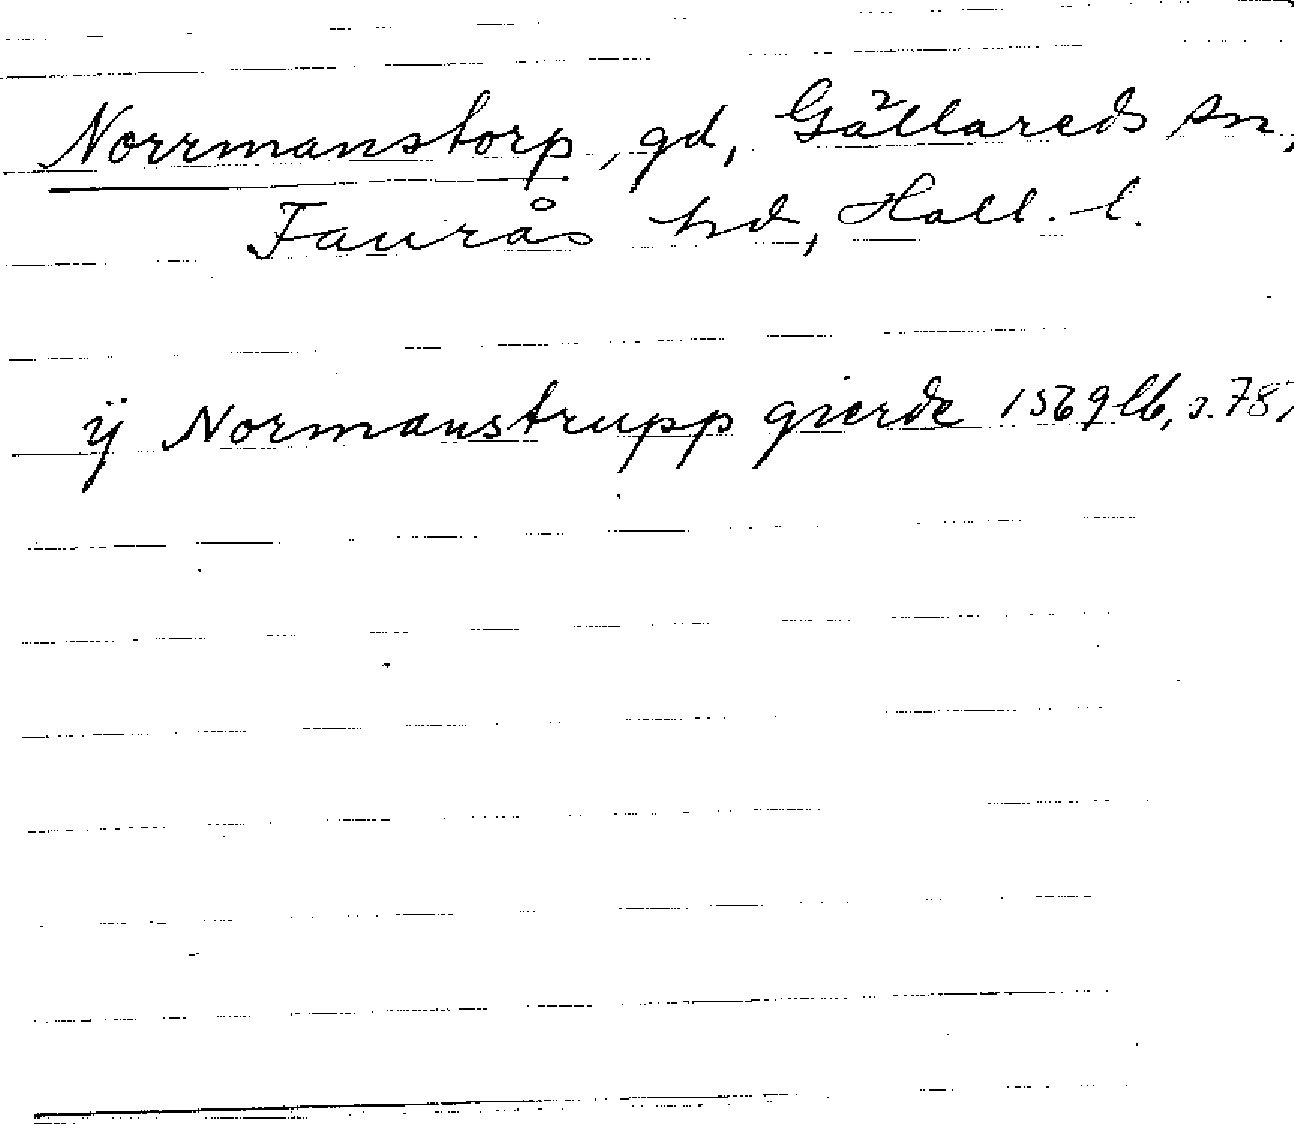 Norrmanstorp, gd, Gällareds sn,
Faurås hd, Hall. l.
ÿ Normanstrupp gierde 1569 lb, s. 78,